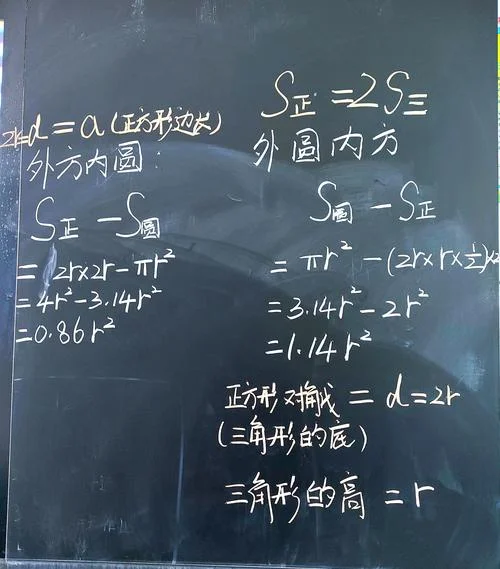 2r=d=a(正方形边长)
外方内圆:
S正-S圆
=2r×2r-πr²
=4r²-3.14r²
=0.86r²
S正=2S三
外圆内方
S圆-S正
=πr²-(2r×r×1/2)×2
=3.14r²-2r²
=1.14r²
正方形对角线=d=2r
(三角形的底)
三角形的高=r